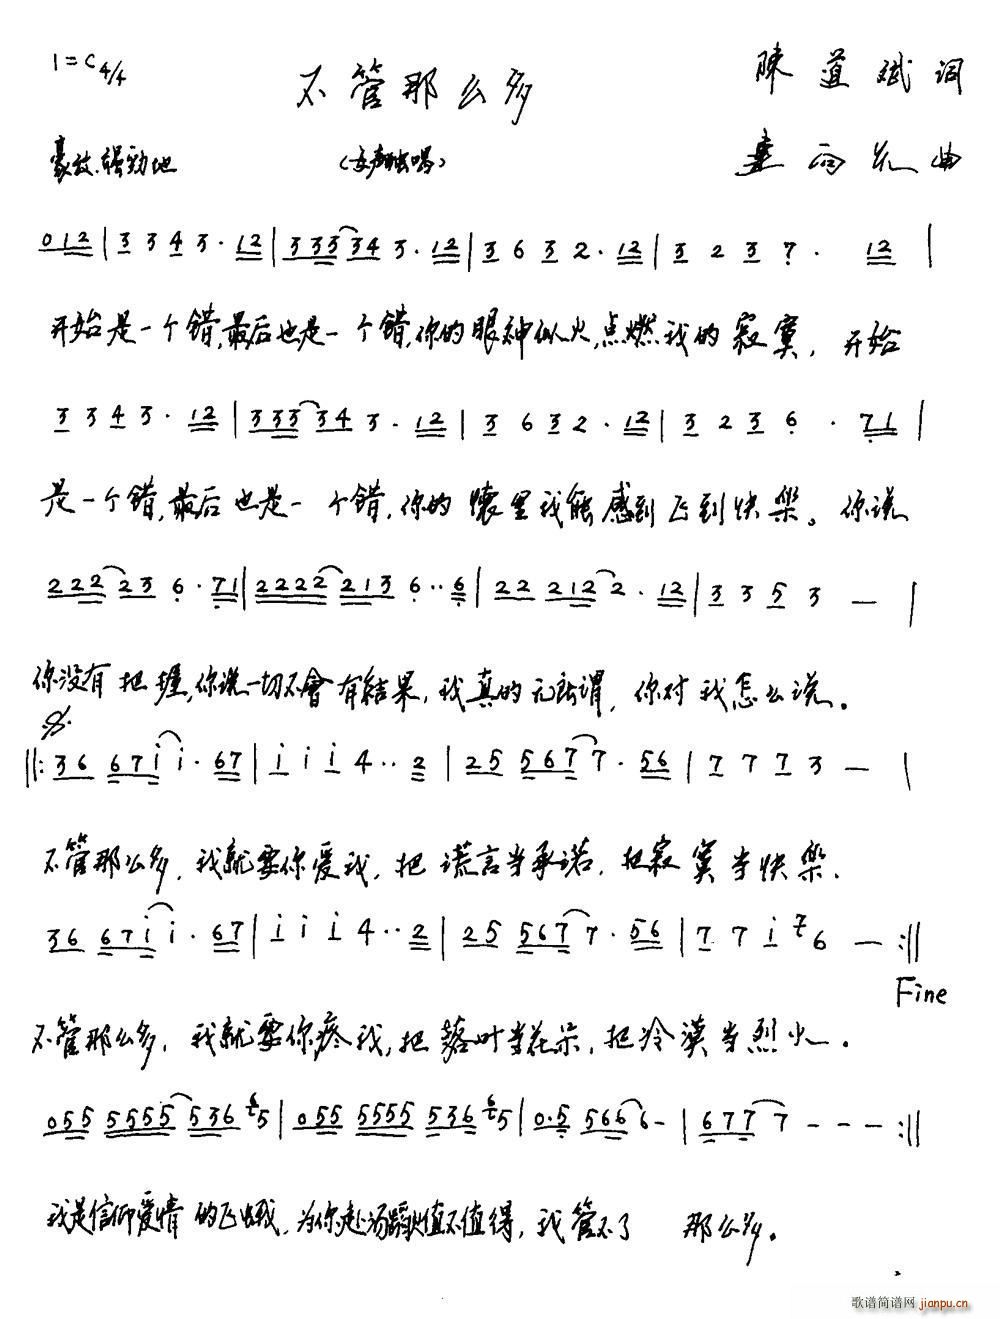 1=C 4/4
不管那么多
陳道斌词
豪放、强劲地
(女声独唱)
曲
0 1 2 | 3 3 4 3 · 1 2 | 3 3 3 3 4 3 · 1 2 | 3 6 3 2 · 1 2 | 3 2 3 7 · 1 2 |
开始是一个错,最后也是一个错,你的眼神似火,点燃我的寂寞,开始
3 3 4 3 · 1 2 | 3 3 3 3 4 3 · 1 2 | 3 6 3 2 · 1 2 | 3 2 3 6 · 7 1 |
是一个错,最后也是一个错,你的懷里我能感到飞到快樂。你说
2 2 2 2 3 6 · 7 1 | 2 2 2 2 2 1 3 6 ·· 6 | 2 2 2 1 2 2 · 1 2 | 3 3 5 3 — |
你没有把握,你说一切不會有结果,我真的无所谓,你对我怎么说。
‖: 3 6 6 7 i i · 6 7 | i i i 4 ·· 2 | 2 5 5 6 7 7 · 5 6 | 7 7 7 3 — |
不管那么多,我就要你爱我,把谎言当承诺,把寂寞当快樂.
3 6 6 7 i i · 6 7 | i i i 4 ·· 2 | 2 5 5 6 7 7 · 5 6 | 7 7 i 7 6 — :‖
Fine
不管那么多,我就要你疼我,把落叶当花朵,把冷漠当烈火.
0 5 5 5 5 5 5 5 3 6 6 5 | 0 5 5 5 5 5 5 5 3 6 6 5 | 0 · 5 5 6 6 6 - | 6 7 7 7 - - - :‖
我是信仰爱情的飞蛾,为你赴汤蹈火值不值得,我管不了 那么多。
歌谱简谱网 jianpu.cn